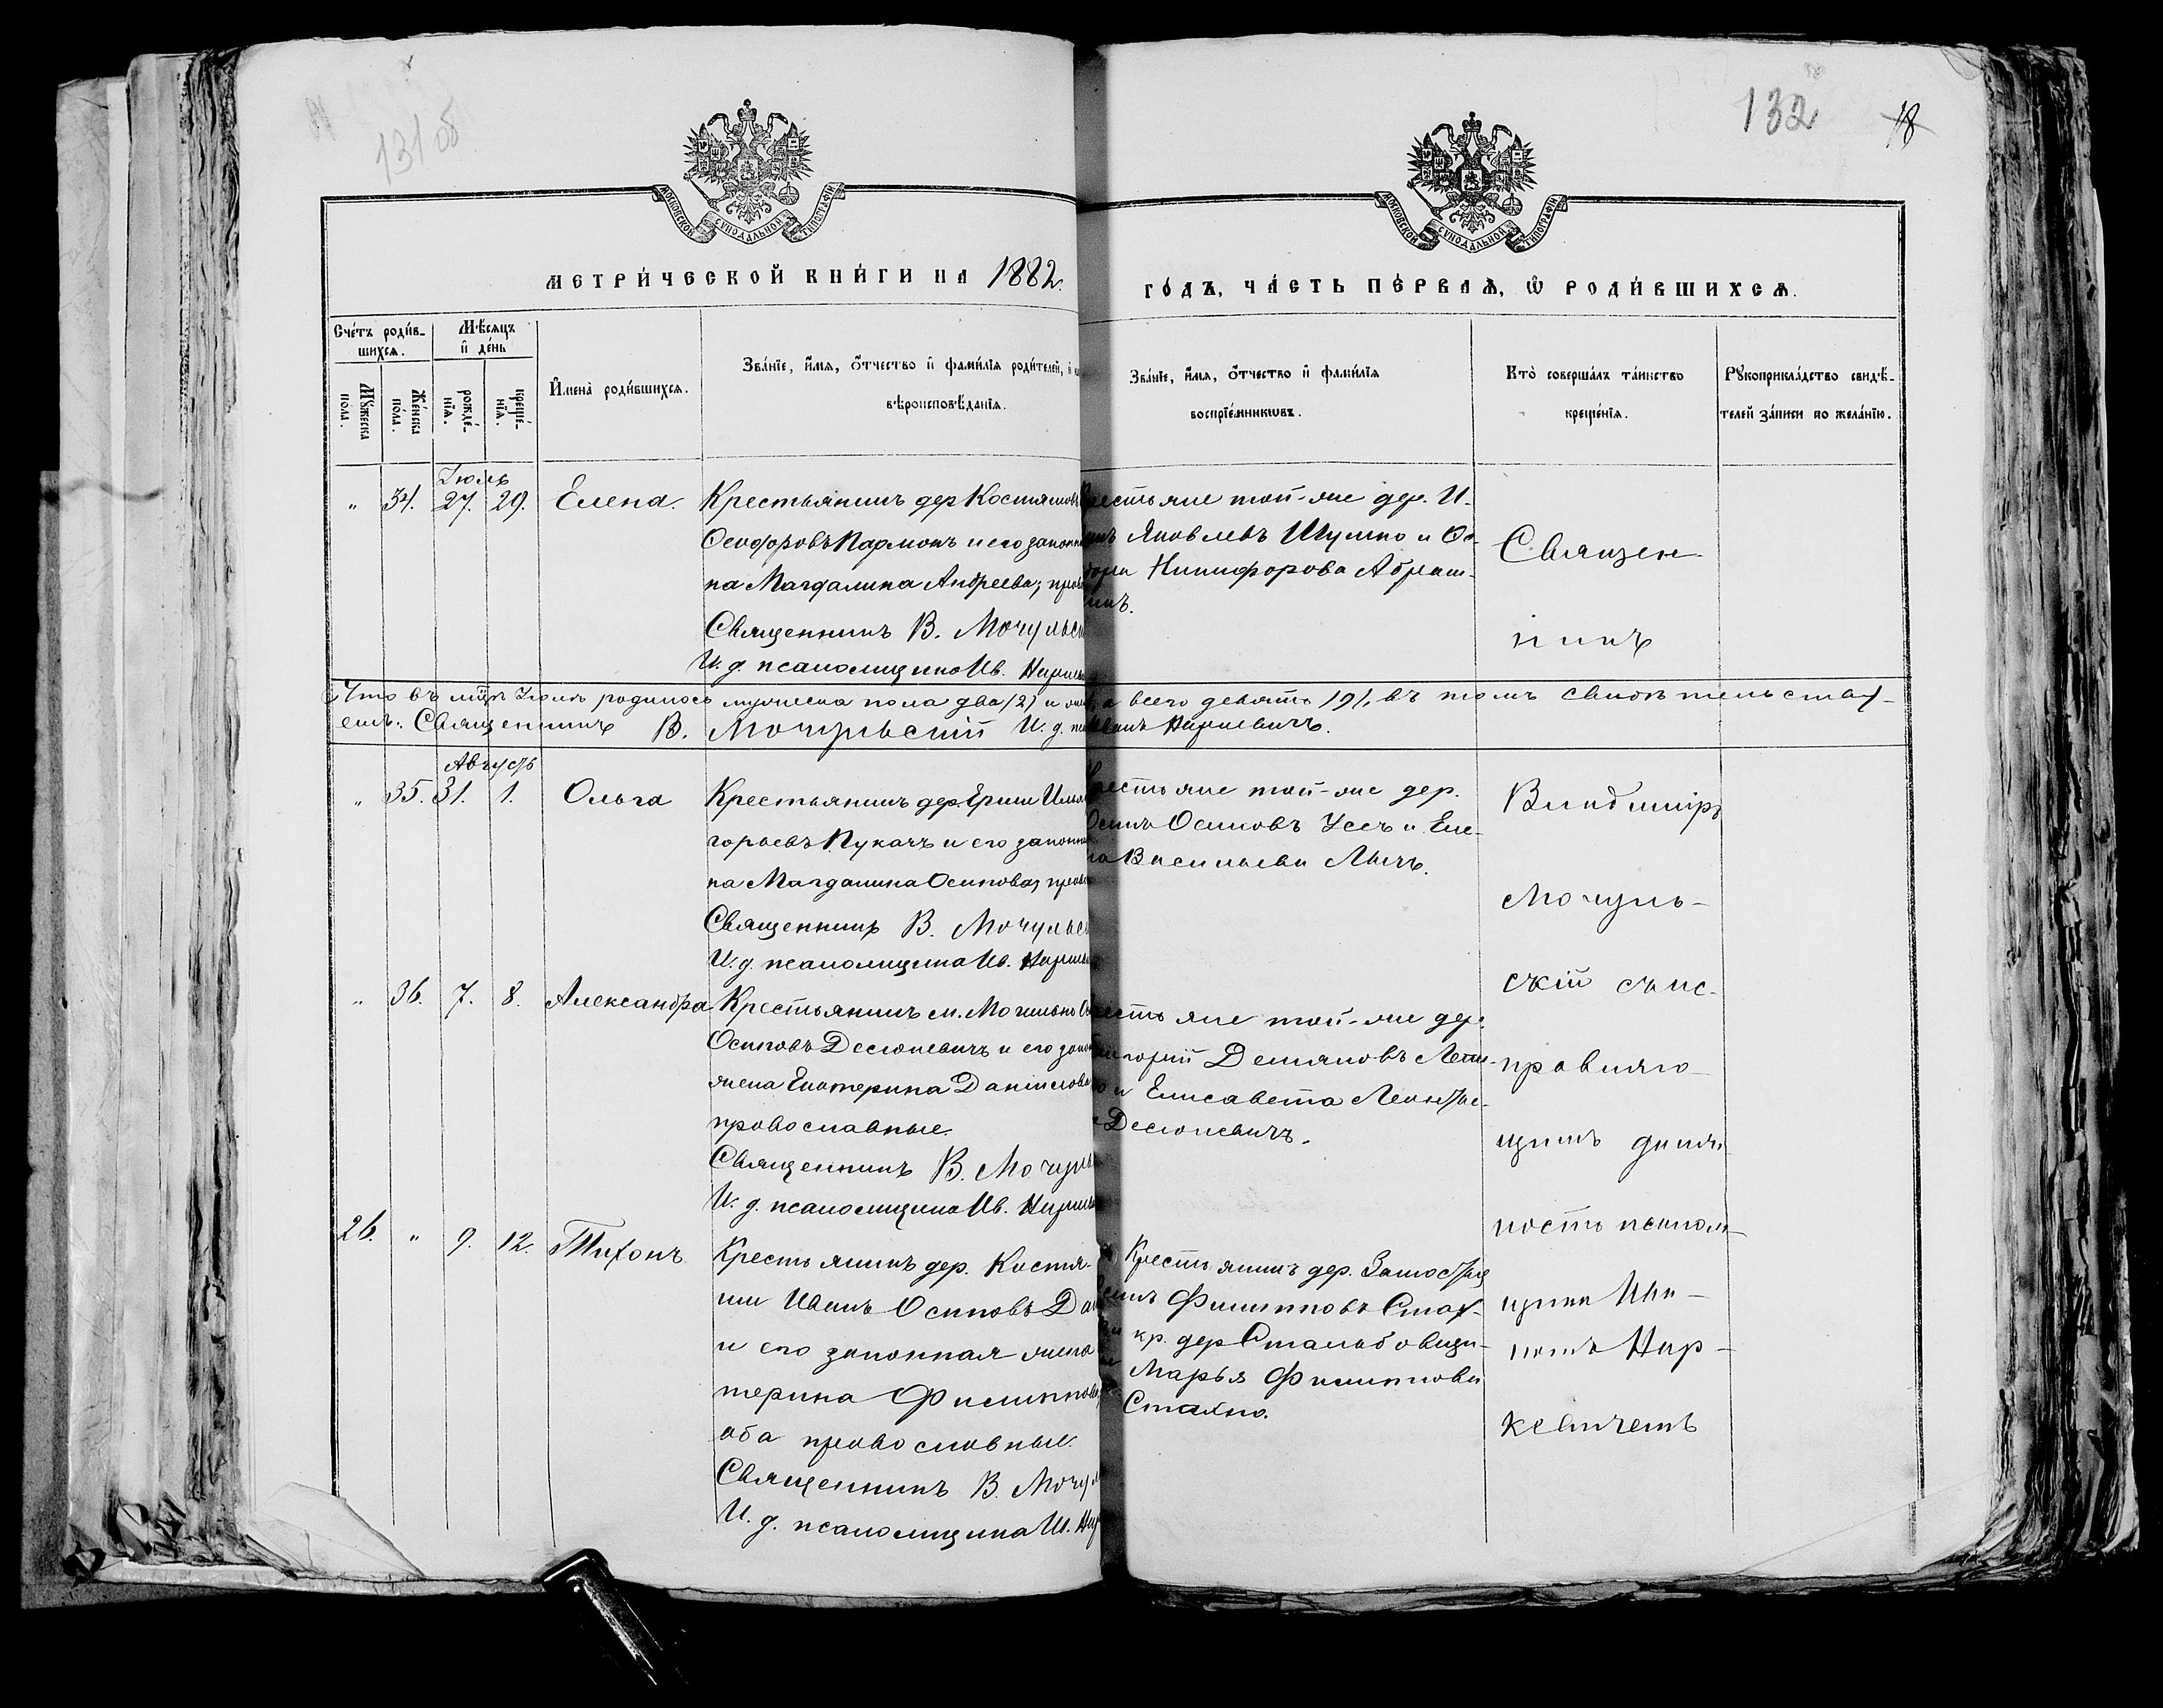 131 об
132
18
МОСКОВСКОЙ СУНОДАЛЬНОЙ ТИПОГРАФІИ
МОСКОВСКОЙ СУНОДАЛЬНОЙ ТИПОГРАФІИ
МЕТРИ́ЧЕСКОЙ КНИ́ГИ НА 1882.
ГО́ДЪ, ЧА́СТЬ ПЕ́РВАѦ, Ѡ РОДИ́ВШИХСѦ.
Сче́тъ роди́в-
шихсѧ.
Мꙋ́жеска
пола.
Же́нска
по́ла.
Мѣ́сяцъ
и де́нь
рожде́-
нїѧ.
креще́-
нїѧ.
И҆мена̀ роди́вшихсѧ.
Зва́нїе, и҆́мѧ, ѻ҆́тчество и҆ фами́лїѧ роди́телей, и
вѣроисповѣ́данїѧ.
Зва́нїе, и҆́мѧ, ѻ҆́тчество и҆ фами́лїѧ
воспрїе́мникѡвъ.
Кто̀ соверша́лъ та́инство
креще́нїѧ.
Рꙋкоприкла́дство свидѣ́-
телей за́писи по жела́нїю.
Іюль
" 34. 27. 29. Елена.
Крестьянинъ дер Костяшов
Ѳеодоровъ Пармонъ и его законн
на Магдалина Андреева, прав
Священникъ В. Мочульс
И. д. псаломщика Ив. Нарке
рестьяне той-же дер. И-
анъ Яковлевъ Шумко и Ѳе-
дора Никифорова Абраш-
Священ-
никъ
Что въ мцѣ Іюлѣ родилось мужеска пола два (2) и
а всего девять (9), въ томъ свидѣтельству-
емъ: Священникъ В. Мочульскій И. д.
Иванъ Наркевичъ.
Августъ
" 35. 31. 1. Ольга
Крестьянинъ дер.
горьевъ Пукачъ и его законн
на Магдалина Осипова, прав
Священникъ В. Мочульс
И. д. псаломщика Ив. Нарке
рестьяне той-же дер.
Осипъ Осиповъ Усъ и Еле-
на Васильева Лычъ.
Владиміръ
Мочуль-
скій съ ис-
правляю-
щимъ долж
ность псалом-
щика Ива-
номъ Нар-
кевичемъ
" 36. 7. 8. Александра
Крестьянинъ м. Могильно
Осиповъ Десюкевичъ и его закон
жена Екатерина Даніилова
православные.
Священникъ В. Мочуль
И. д. псаломщика Ив. Нарке
рестьяне той-же дер.
Григорій Демьяновъ
и Елисавета Леонтье-
Десюкевичъ.
26. " 9. 12. Тихонъ
Крестьянинъ дер. Костя-
ши Иванъ Осиповъ
и его законная жена
терина Филиппова,
оба православные.
Священникъ В. Мочул
И. д. псаломщика Ив. Нар
Крестьянинъ дер. Замостья
Филипповъ Стах-
кр. дер
Марья Филиппова
Стахно.